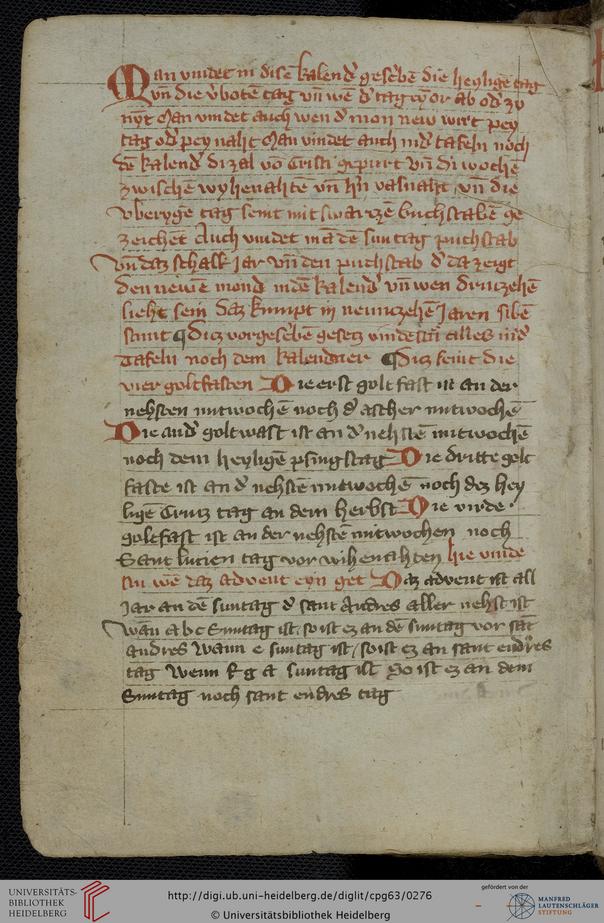 Man vindet in disē kalend' geschⁱbē die heylige tag
vn̄ die v'botē tag vn̄ wē d' tag ab od' zu
nyt Man vindet auch wen d' mon new wirt pey
tag od' pey naht Man vindet auch in d' tafeln noch
dē kalend' di zal vō Cristi gepurt vn̄ di wochē
zwischē wyhenahtē vn̄ h'n vasnaht vn̄ die
vberyge tag seint mit swartzē buchstabē ge
zeichet Auch vindet mā dē suntag puchstab
vn̄ daz schalk iar vn̄ den puchstab d' da zeigt
den newē mond in dē kalend' vn̄ wen
lieht sein Daz kumpt in newntzehē Jaren
¶ Ditz vorgeschⁱbē gesetz alles in d'
Tafeln noch dem kalendier ¶ Ditz seint die
vier goltfasten Die erst golt fast ist an der
nehsten mitwochē noch d' ascher mitwochē
Die and' goltvast ist an d' nehstē mitwochē
noch dem heyligē pfingstag Die dritte golt
faste ist an d' nehstē mitwochē noch dez hey
ligē Crutz tag an dem herbst Die virde
goltfast ist an der nehstē mitwochen noch
Sant lucien tag vor wihenahten hie vinde
stu wē daz advent eyn get Daz advent ist all
Jar an dē suntag d' sant Andres aller nehst ist
wān a b c Suntag ist, so ist ez an dē suntag vor sāt
andres Wann e suntag ist, so ist ez an sant endres
tag Wenn f g d suntag ist So ist ez an dem
Suntag noch sant endres tag
UNIVERSITÄTS-
BIBLIOTHEK
HEIDELBERG
http://digi.ub.uni-heidelberg.de/diglit/cpg63/0276
© Universitätsbibliothek Heidelberg
gefördert von der
MANFRED
LAUTENSCHLÄGER
STIFTUNG